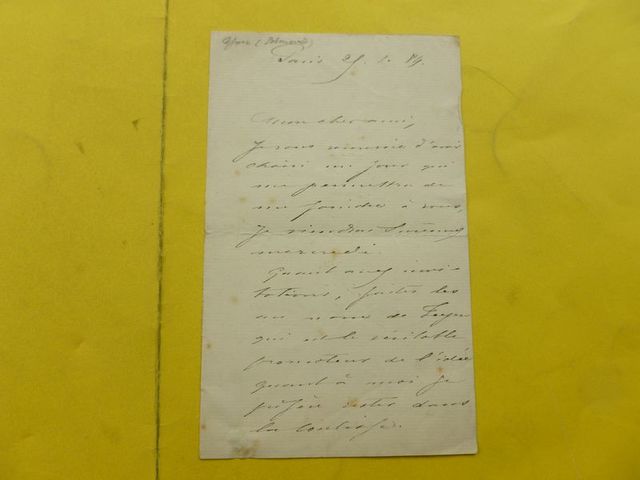 Paris 25. 1. 84.
Mon cher ami,
Je vous remercie d'avoir
choisi un jour qui
me permettra de
me joindre à vous,
Je viendrai
mercredi
Quant aux invi-
tations, faites les
au nom de
qui est le véritable
promoteur de l'idée
quant à moi je
préfère rester dans
la coulisse.